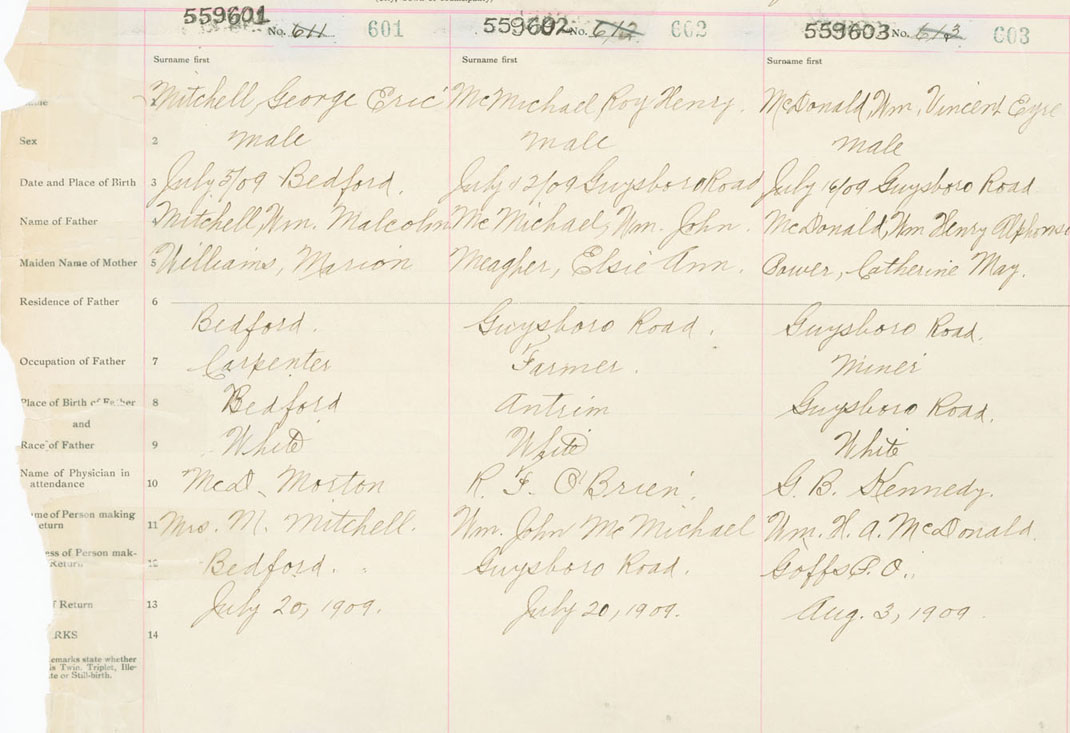 559601 No. 611 601 559602 No. 612 602 559603 No. 613 603
Surname first Surname first Surname first
Mitchell, George Eric McMichael, Roy Henry. McDonald, Wm, Vincent Eyre
Sex 2 male male male
Date and Place of Birth 3 July 5/09 Bedford. July 12/09 Guysboro Road July 16/09 Guysboro Road
Name of Father 4 Mitchell, Wm. Malcolm McMichael, Wm. John. McDonald, Wm Henry Alphonse
Maiden Name of Mother 5 Williams, Marion Meagher, Elsie Ann. Power, Catherine May.
Residence of Father 6
Bedford. Guysboro Road. Guysboro Road.
Occupation of Father 7 Carpenter Farmer. Miner
Place of Birth of Father 8 Bedford Antrim Guysboro Road.
and
Race of Father 9 White White White
Name of Physician in
attendance 10 McD. Morton R. F. O'Brien. G. B. Kennedy.
me of Person making
eturn 11 Mrs. M. Mitchell. Wm. John McMichael Wm. H. A. McDonald.
ess of Person mak-
Return 12 Bedford. Guysboro Road. Goffs P.O.
f Return 13 July 20, 1909. July 20, 1909. Aug. 3, 1909.
RKS 14
emarks state whether
is Twin, Triplet, Ille-
te or Still-birth.